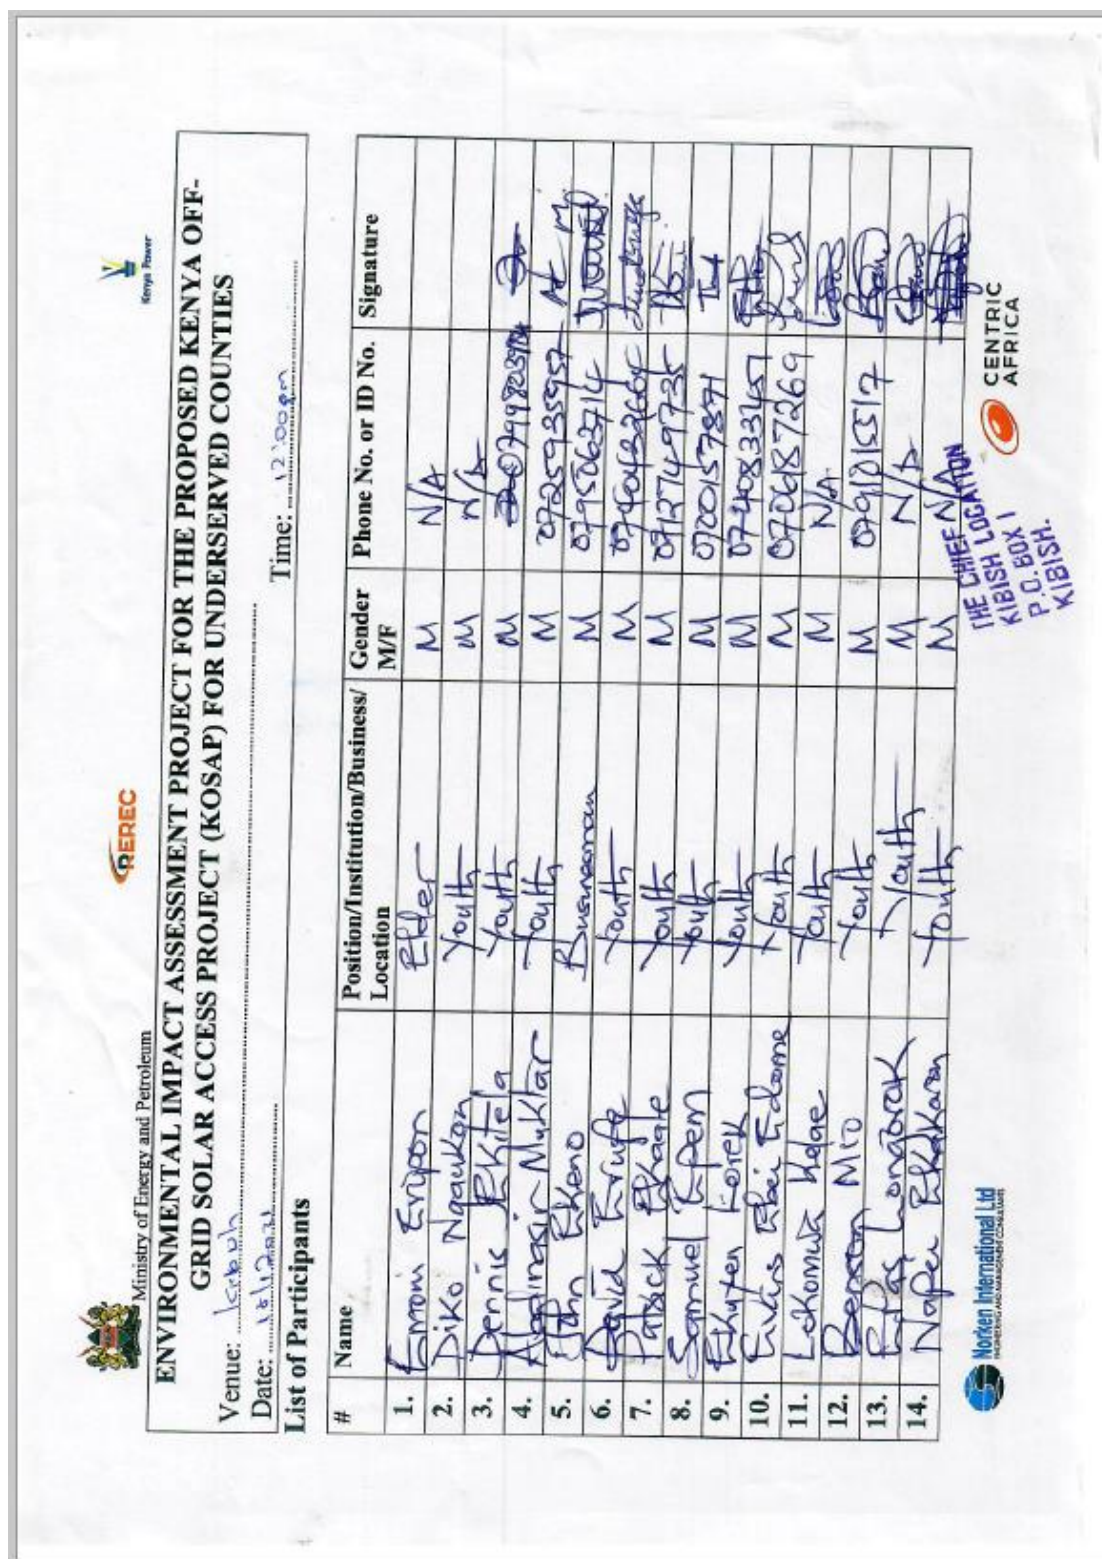 Ministry of Energy and Petroleum
REREC
Kenya Power
ENVIRONMENTAL IMPACT ASSESSMENT PROJECT FOR THE PROPOSED KENYA OFF-
GRID SOLAR ACCESS PROJECT (KOSAP) FOR UNDERSERVED COUNTIES
Venue: Kibish
Date: Time: 12:00pm
List of Participants
# Name Position/Institution/Business/Location Gender M/F Phone No. or ID No. Signature
1. Emoni Eripon Elder M N/A
2. Diko Ngaukon Youth M N/A
3. Dennis Ekitela Youth M
4. Muktar Youth M 0725935957
5. John Ekeno Businessman M 0795063714
6. David Erupe Youth M
7. Patrick Ekaale Youth M 0712749735
8. Samuel Epen Youth M 0700157871
9. Ekuyen Lorek Youth M
10. Elvis Ebei Edome Youth M 0706187269
11. Lokomwa Youth M N/A
12. Benson Mio Youth M
13. Longorok Youth M N/A
14. Napei Ekakaron Youth M N/A
THE CHIEF
KIBISH LOCATION
P.O. BOX 1
KIBISH.
Norken International Ltd
ENGINEERING AND MANAGEMENT CONSULTANTS
CENTRIC
AFRICA